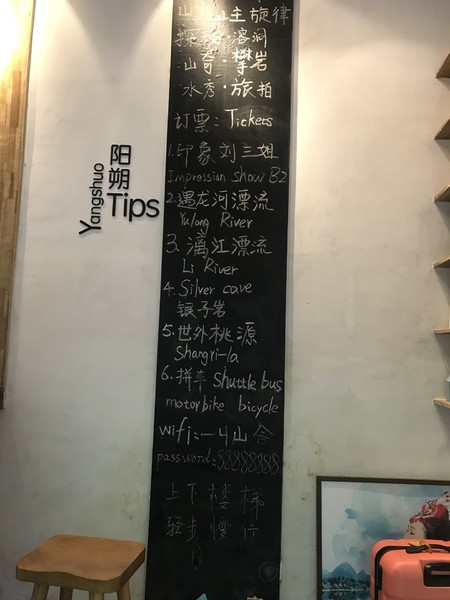 主旋律
探秘·溶洞
山奇·攀岩
水秀·旅拍
订票：Tickets
1.印象刘三姐
Impression show B2
2.遇龙河漂流
Yulong River
3.漓江漂流
Li River
4.Silver cave
银子岩
5.世外桃源
Shangri-la
6.拼车 Shuttle bus
motorbike bicycle
wifi:一4山舍
password:88888888
上下楼梯
轻步慢行
阳朔
Yangshuo
Tips